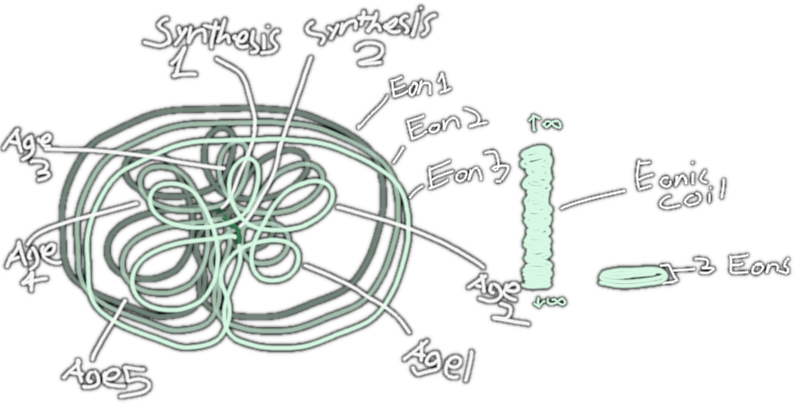 Synthesis
1
Synthesis
2
Eon 1
Eon 2
Eon 3
Age
3
Age
4
Age5
Age1
Age
2
↑∞
Eonic
coil
3 Eons
↓∞